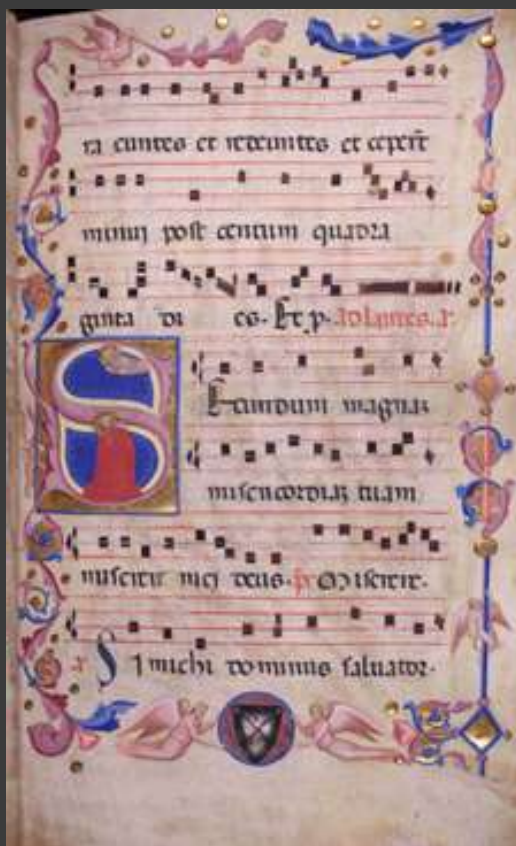 ra euntes et redeuntes et ceperunt
minui post centum quadra
ginta di es. Et p. Ad laudes. a.
Secundum magnam
misericordiam tuam
miserere mei deus. ps. Miserere.
a Si michi dominus saluator.